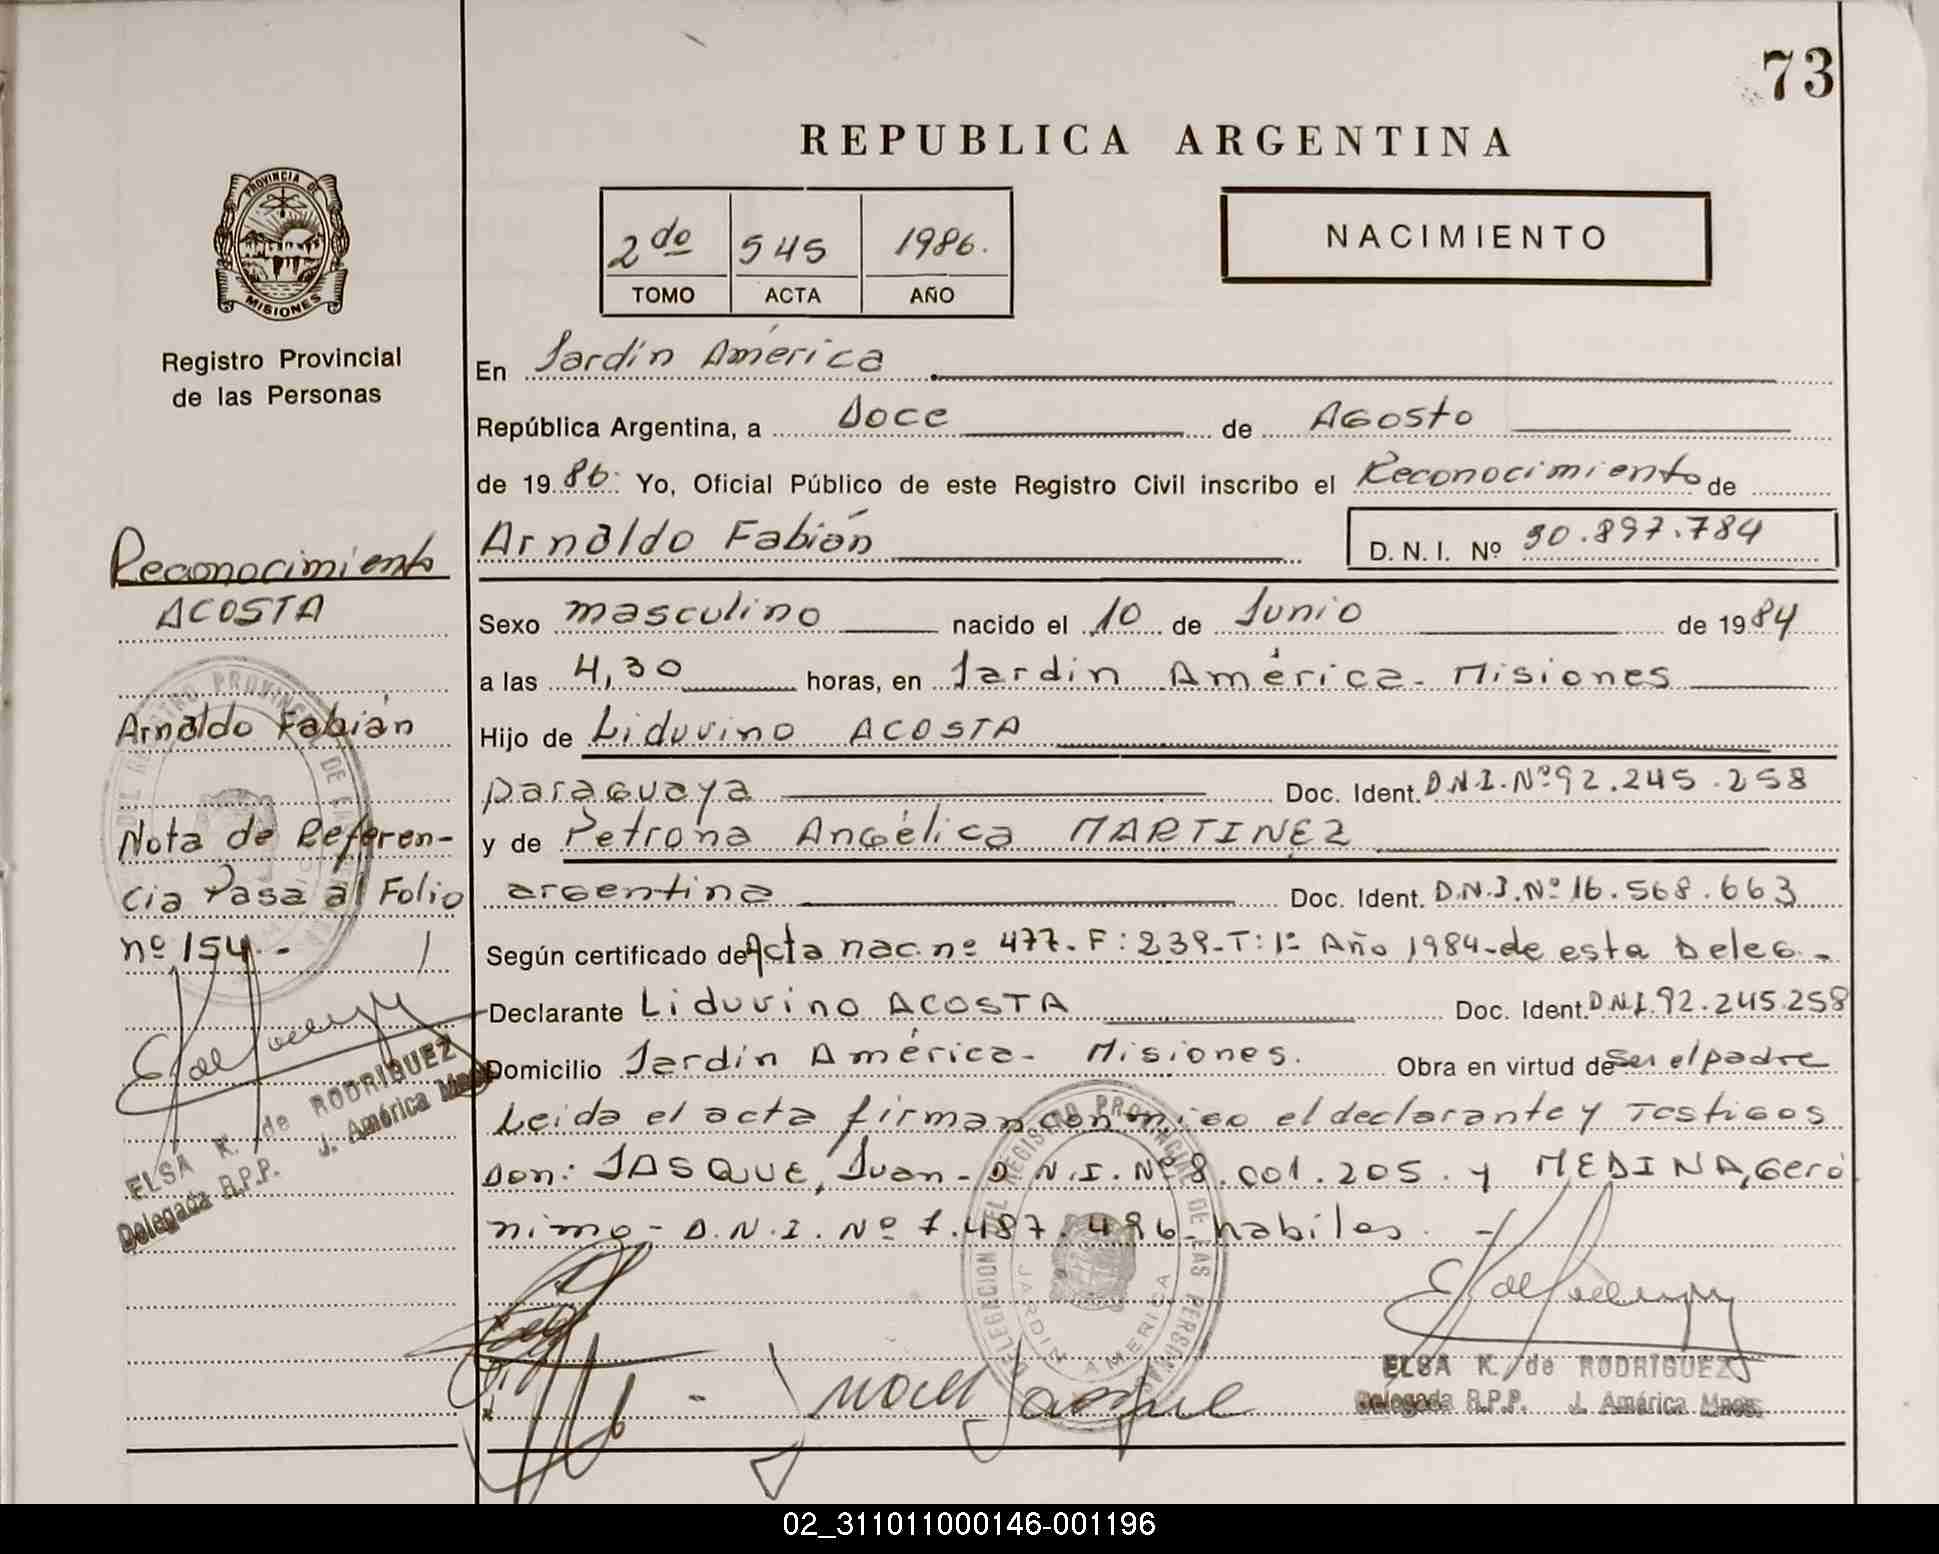 73
REPUBLICA ARGENTINA
PROVINCIA DE
MISIONES
2do 545 1986.
TOMO ACTA AÑO
NACIMIENTO
Registro Provincial
de las Personas
Reconocimiento
ACOSTA
Arnaldo Fabián
Nota de Referen-
cia Pasa al Folio
nº 154.-
ELSA K. de RODRIGUEZ
Delegada R.P.P. J. América Mnes.
En Jardín América
República Argentina, a Doce de Agosto
de 1986. Yo, Oficial Público de este Registro Civil inscribo el Reconocimiento de
Arnaldo Fabián D. N. I. Nº 30.897.784
Sexo masculino nacido el 10 de Junio de 1984
a las 4,30 horas, en Jardín América - Misiones
Hijo de Liduvino ACOSTA
paraguaya Doc. Ident. D.N.I. Nº 92.245.258
y de Petrona Angélica MARTINEZ
argentina Doc. Ident. D.N.I. Nº 16.568.663
Según certificado de Acta nac. nº 477- F: 239- T: 1º Año 1984- de esta Deleg.-
Declarante Liduvino ACOSTA Doc. Ident. D.N.I. 92.245.258
Domicilio Jardín América - Misiones. Obra en virtud de ser el padre
Leida el acta firman conmigo el declarante y Testigos
Don: JASQUE, Juan - D.N.I. Nº 8.001.205. y MEDINA, Geró
nimo - D.N.I. Nº 7.487.496- habiles. -
DELEGACION DEL REGISTRO PROVINCIAL DE LAS PERSONAS
JARDIN AMERICA
ELSA K. de RODRIGUEZ
Delegada R.P.P. J. América Mnes.
02_311011000146-001196